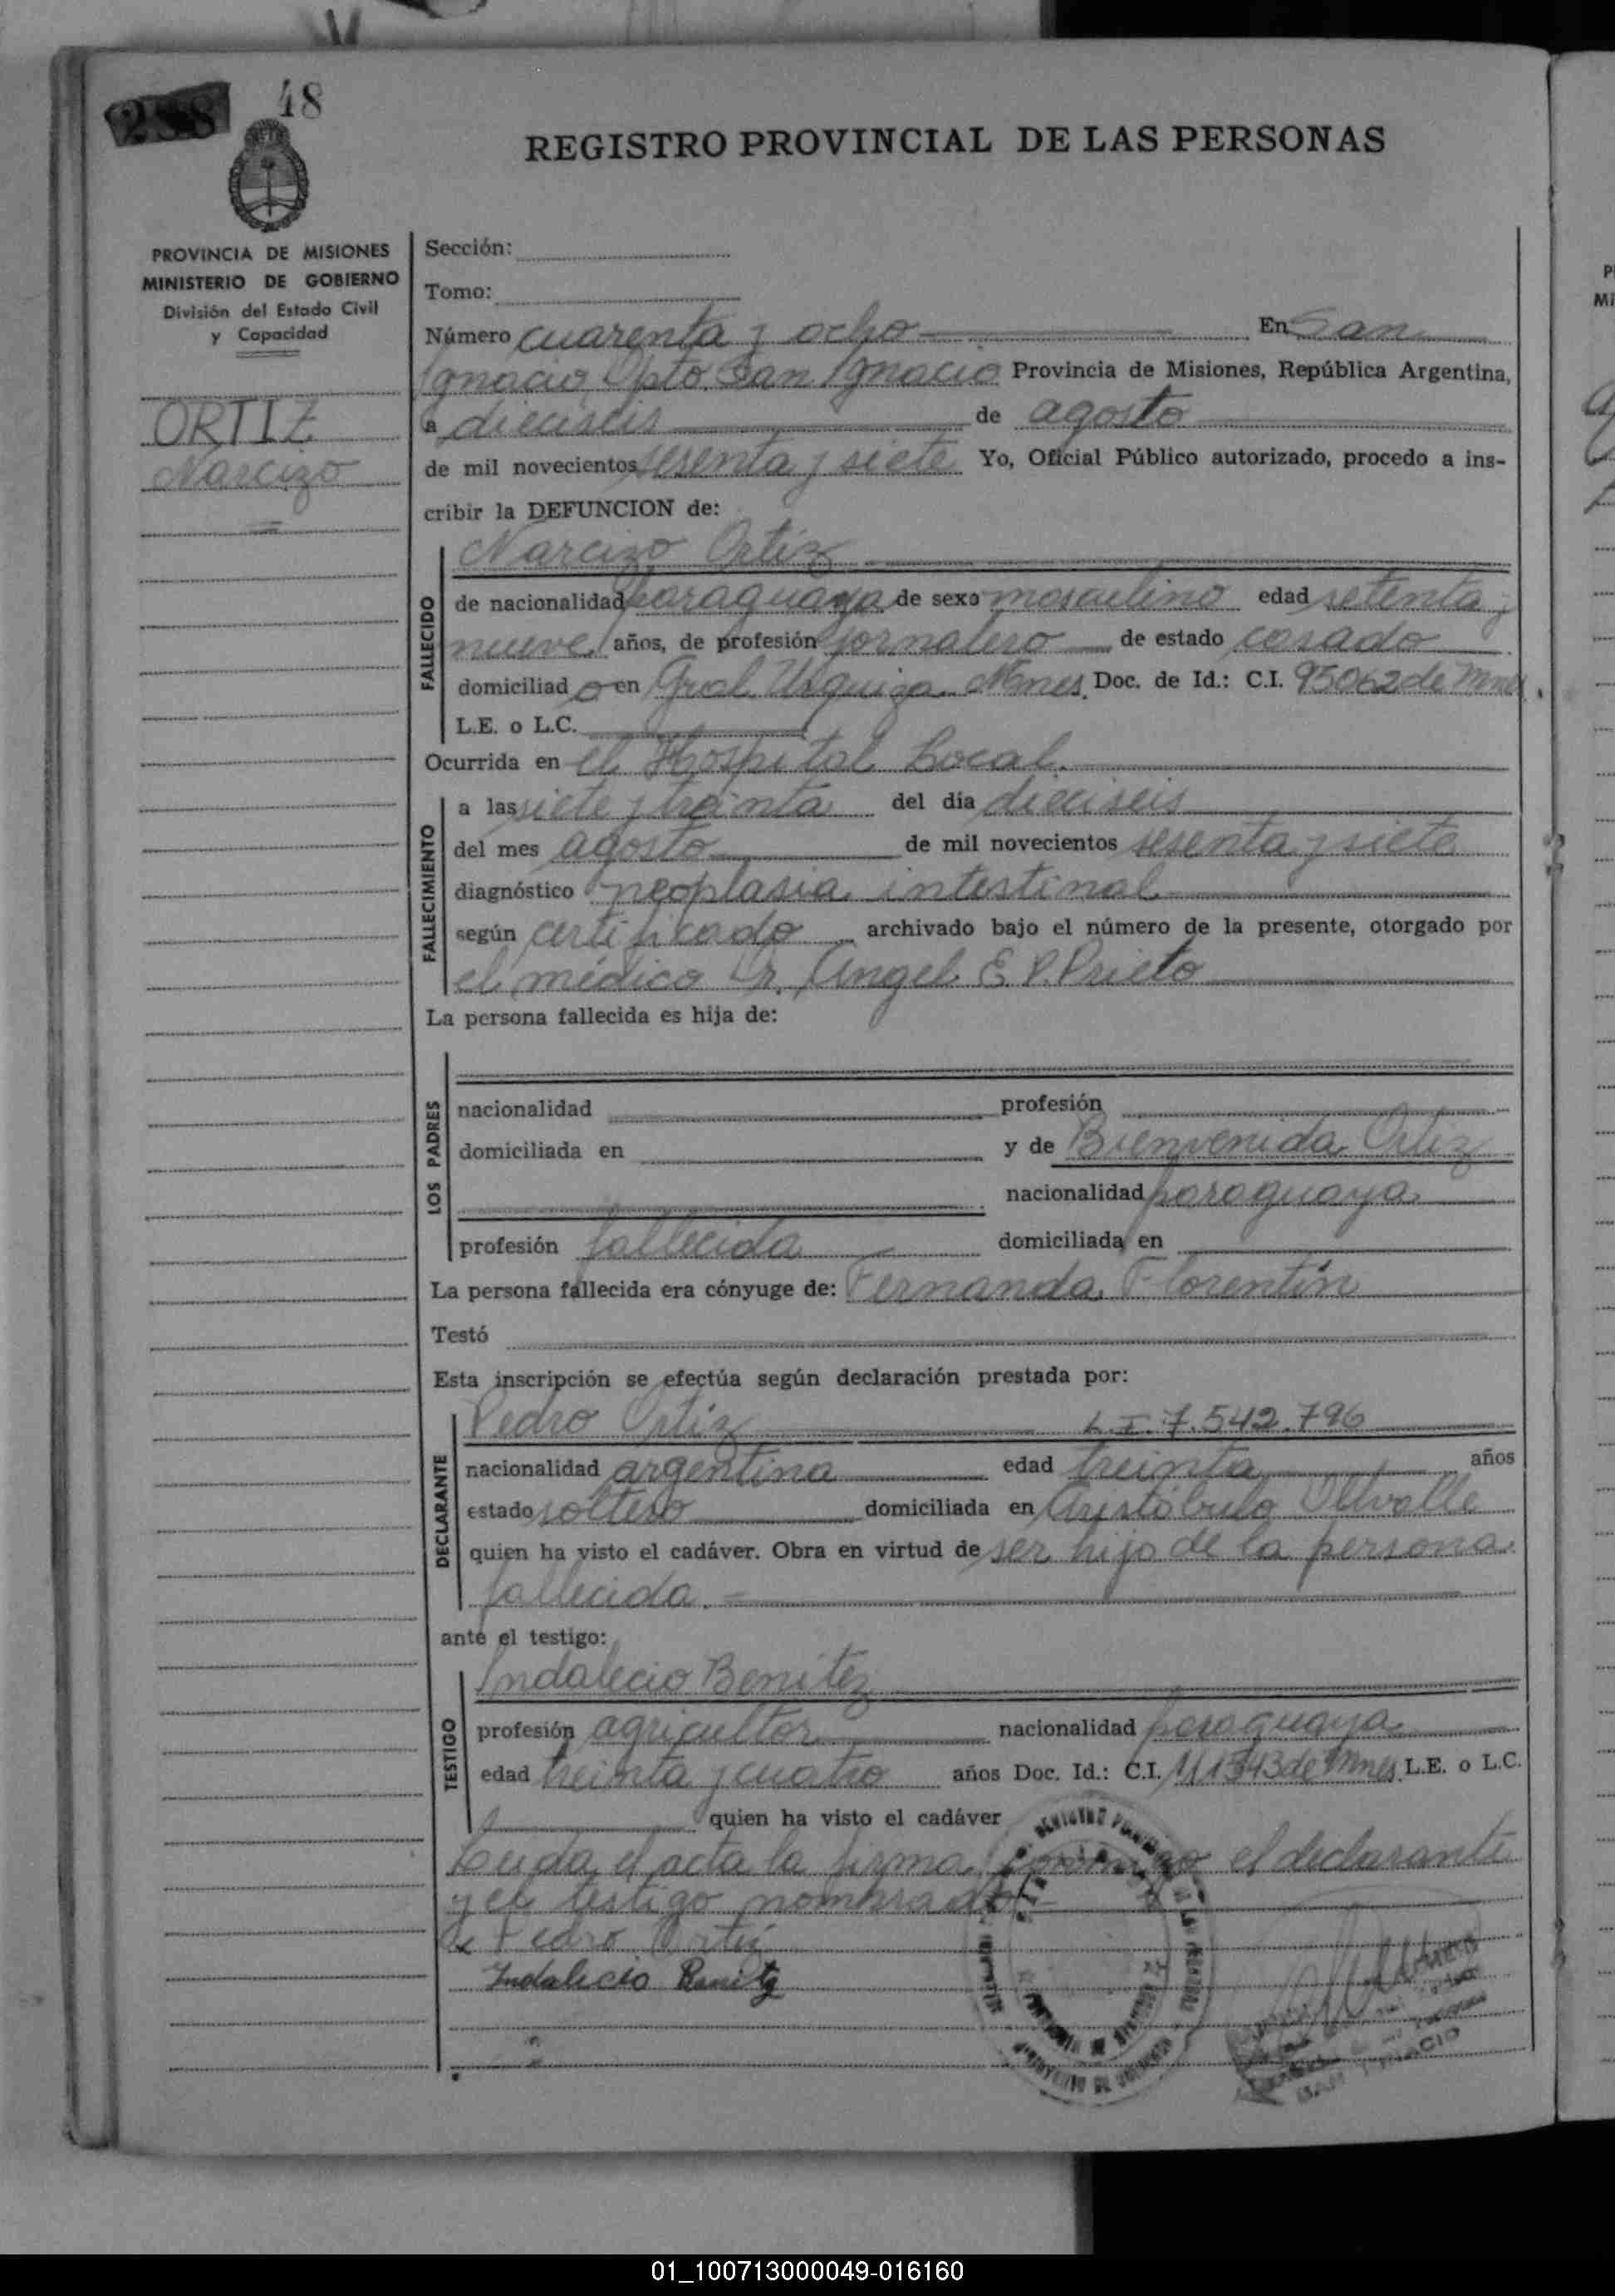 288 48
REGISTRO PROVINCIAL DE LAS PERSONAS
PROVINCIA DE MISIONES
MINISTERIO DE GOBIERNO
División del Estado Civil
y Capacidad
ORTIZ
Narcizo
Sección:
Tomo:
Número cuarenta y ocho En San
Ignacio Dpto. San Ignacio Provincia de Misiones, República Argentina,
a dieciseis de agosto
de mil novecientos sesenta y siete Yo, Oficial Público autorizado, procedo a ins-
cribir la DEFUNCION de:
FALLECIDO
Narcizo Ortiz
de nacionalidad paraguaya de sexo masculino edad setenta y
nueve años, de profesión jornalero de estado casado
domiciliado en Gral. Urquiza Mnes. Doc. de Id.: C.I. 95062 de Mnes.
L.E. o L.C.
Ocurrida en el Hospital Local.
FALLECIMIENTO
a las siete y treinta del día dieciseis
del mes agosto de mil novecientos sesenta y siete
diagnóstico neoplasia intestinal
según certificado archivado bajo el número de la presente, otorgado por
el médico Dr. Angel E. P. Prieto
La persona fallecida es hija de:
LOS PADRES
nacionalidad profesión
domiciliada en y de Bienvenida Ortiz
nacionalidad paraguaya
profesión fallecida domiciliada en
La persona fallecida era cónyuge de: Fernanda Florentín
Testó
Esta inscripción se efectúa según declaración prestada por:
DECLARANTE
Pedro Ortiz L.I. 7.542.796
nacionalidad argentina edad treinta años
estado soltero domiciliada en Aristóbulo
quien ha visto el cadáver. Obra en virtud de ser hijo de la persona
fallecida.=
ante el testigo:
TESTIGO
Indalecio Benitez
profesión agricultor nacionalidad paraguaya
edad treinta y cuatro años Doc. Id.: C.I. 111343 de Mnes. L.E. o L.C.
quien ha visto el cadáver
Leida el acta la firma conmigo el declarante
y el testigo nombrado
Pedro Ortiz
Indalecio Benitez
SAN IGNACIO
01_100713000049-016160